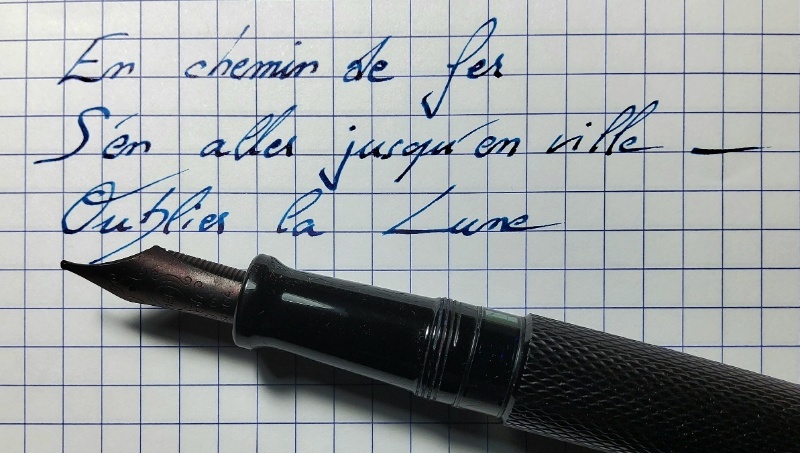 En chemin de fer
S'en aller jusqu'en ville —
Oublier la Lune